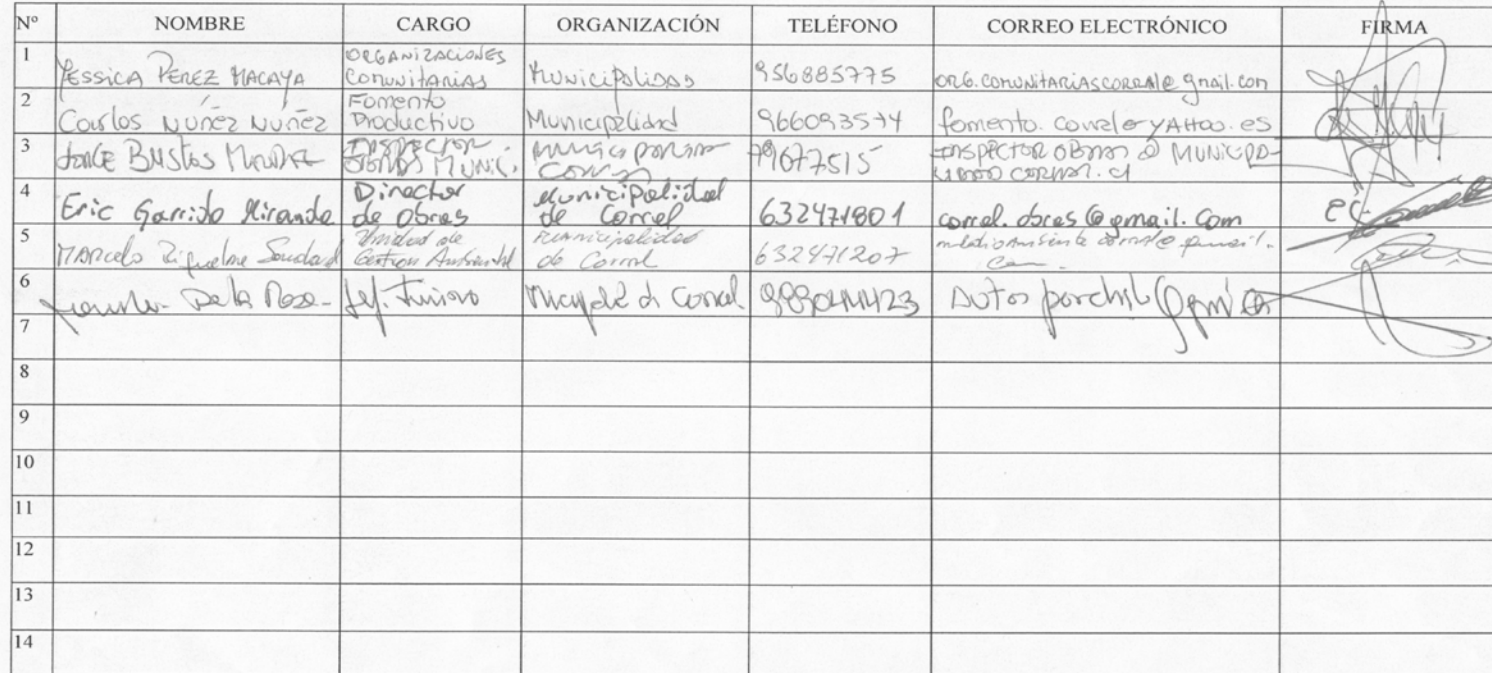 Nº NOMBRE CARGO ORGANIZACIÓN TELÉFONO CORREO ELECTRÓNICO FIRMA
1 Yessica Perez Macaya Organizaciones Comunitarias Municipalidad 956885775 org.comunitariascorral@gmail.com
2 Carlos Nuñez Nuñez Fomento Productivo Municipalidad 966093574 fomento.corral@yahoo.es
3 Jorge Bustos Inspector Obras Munic. Corral 79677515 Inspector obras @ Municipa-
lidad corral.cl
4 Eric Garrido Miranda Director de Obras Municipalidad de Corral 632471801 corral.obras@gmail.com
5 Marcelo Riquelme Unidad de Gestion Ambiental Municipalidad de Corral 632471207
6 De la Rosa Jef. Turismo de Corral
7
8
9
10
11
12
13
14